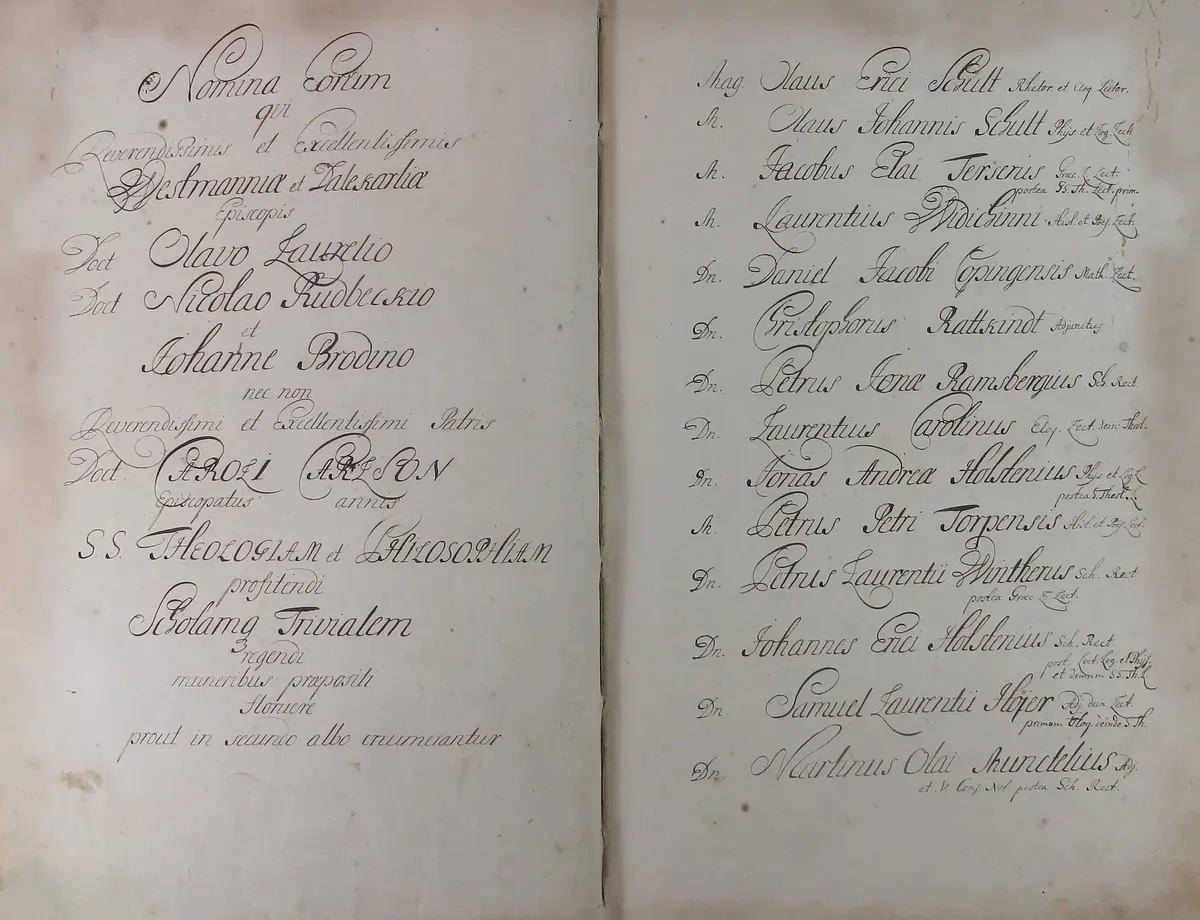 Nomina Eorum
qui
Reverendissimis et Excellentissimis
Westmanniæ et Dalekarliæ
Episcopis
Doct Olavo Laurelio
Doct Nicolao Rudbeckio
et
Johanne Brodino
nec non
Reverendissimi et Excellentissimi Patris
Doct. CAROLI CARLSON
Episcopatus annis
S.S. THEOLOGIAM et PHILOSOPHIAM
profitendi
Scholamq Trivialem
regendi
muneribus præpositi
floruere
prout in secundo albo enumerantur
Mag. Olaus Erici Schult Rhetor. et Eloq Lector.
M. Olaus Johannis Schult Phys et Log Lect
M. Jacobus Elai Terserus Græc. L. Lect.
postea SS. Th. Lect. prim.
M. Laurentius Widichinni Hist. et Poes. Lect.
Dn. Daniel Jacobi Copingensis Math. Lect.
Dn. Christophorus Rattkindt Adjunctus
Dn. Petrus Jonæ Ramsbergius Sch. Rect.
Dn. Laurentius Carolinus Eloq. Lect. dein Theol.
Dn. Jonas Andreæ Holstenius Phys et Log L.
postea S. Theol. L.
M. Petrus Petri Torpensis Hist. et Poes Lect.
Dn. Petrus Laurentii Wintherus Sch. Rect
postea Græc L. Lect.
Dn. Johannes Erici Holstenius Sch. Rect.
post. Lect. Log. et Phys.
et demum SS. Th. L.
Dn. Samuel Laurentii Höjer Adj. dein Lect.
primum Eloq. deinde S. Th.
Dn. Martinus Olai Munctelius Adj.
et V. Cons. Not. postea Sch. Rect.